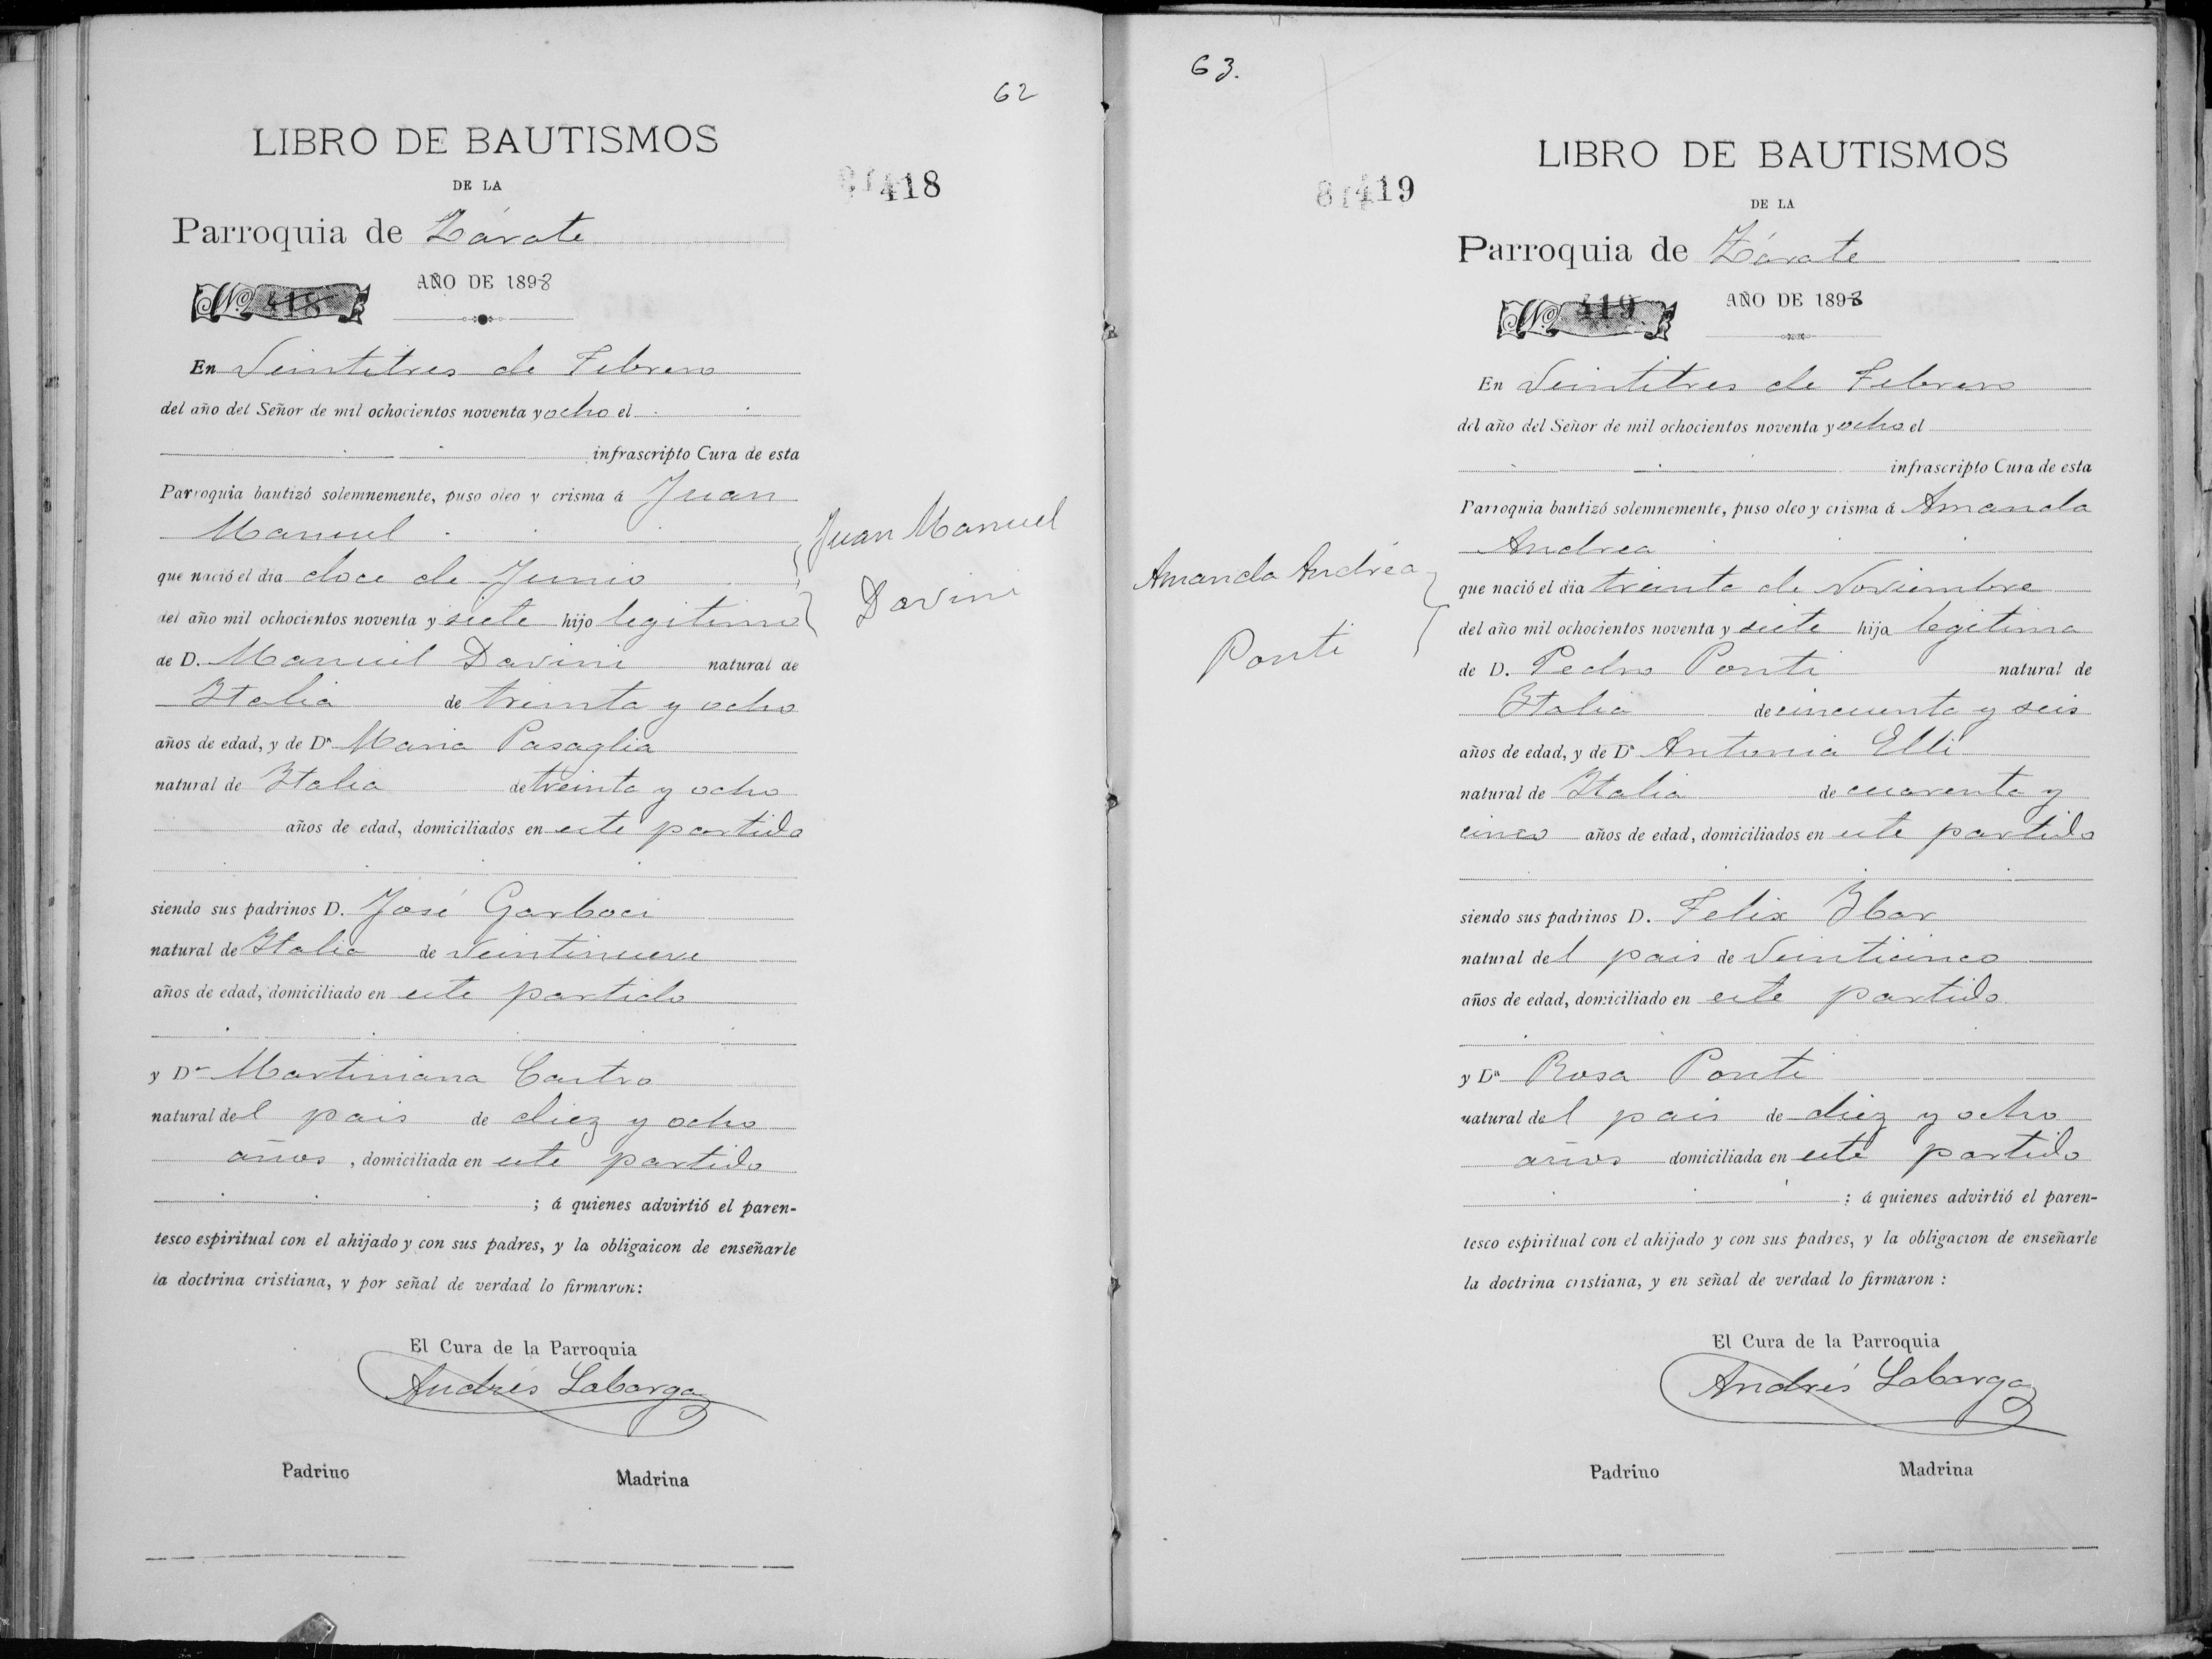 62
LIBRO DE BAUTISMOS
DE LA
418
Parroquia de Zárate
AÑO DE 1898
Nº 418
En Veintitres de Febrero
del año del Señor de mil ochocientos noventa y ocho el
infrascripto Cura de esta
Parroquia bautizó solemnemente, puso oleo y crisma á Juan
Manuel
Juan Manuel
Davini
que nació el dia doce de Junio
del año mil ochocientos noventa y siete hijo legitimo
de D. Manuel Davini natural de
Italia de treinta y ocho
años de edad, y de Dª Maria Pasaglia
natural de Italia de treinta y ocho
años de edad, domiciliados en este partido
siendo sus padrinos D. José Garboci
natural de Italia de Veintinueve
años de edad, domiciliado en este partido
y Dª Martiniana Castro
natural del pais de diez y ocho
años, domiciliada en este partido
; á quienes advirtió el paren-
tesco espiritual con el ahijado y con sus padres, y la obligaicon de enseñarle
la doctrina cristiana, y por señal de verdad lo firmaron:
El Cura de la Parroquia
Andrés Labarga
Padrino Madrina
63.
LIBRO DE BAUTISMOS
DE LA
419
Parroquia de Zárate
AÑO DE 1898
Nº 419
En Veintitres de Febrero
del año del Señor de mil ochocientos noventa y ocho el
infrascripto Cura de esta
Parroquia bautizó solemnemente, puso oleo y crisma á Amanda
Andrea
Amanda Andréa
Ponti
que nació el dia treinta de Noviembre
del año mil ochocientos noventa y siete hija legitima
de D. Pedro Ponti natural de
Italia de cincuenta y seis
años de edad, y de Dª Antonia Elli
natural de Italia de cuarenta y
cinco años de edad, domiciliados en este partido
siendo sus padrinos D. Felix Ibar
natural del pais de Veinticinco
años de edad, domiciliado en este partido
y Dª Rosa Ponti
natural del pais de diez y ocho
años domiciliada en este partido
; á quienes advirtió el paren-
tesco espiritual con el ahijado y con sus padres, y la obligacion de enseñarle
la doctrina cristiana, y en señal de verdad lo firmaron:
El Cura de la Parroquia
Andrés Labarga
Padrino Madrina